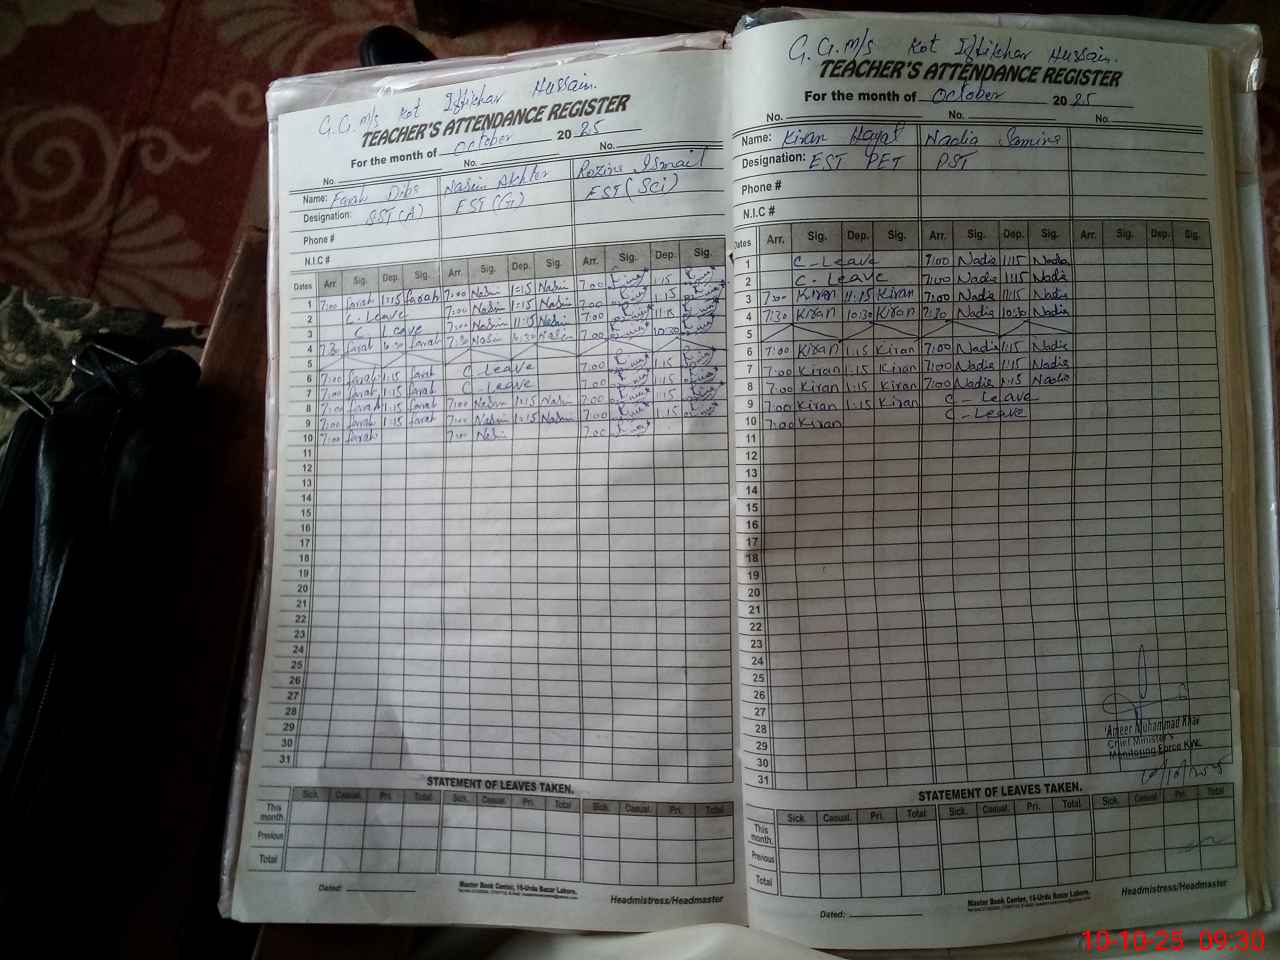 G.G.M/S Kot Iftikhar Hussain.
TEACHER'S ATTENDANCE REGISTER
For the month of October 2025
No. No. No.
Name: Farah Diba Nasim Akhter Rozina Ismail
Designation: SST(A) EST(G) EST(Sci)
Phone #
N.I.C #
Dates Arr. Sig. Dep. Sig. Arr. Sig. Dep. Sig. Arr. Sig. Dep. Sig.
1 7:00 farah 1:15 farah 7:00 Nasim 1:15 Nasim 7:00 1:15
2 C. Leave 7:00 Nasim 1:15 Nasim 7:00 1:15
3 C. Leave 7:00 Nasim 11:15 Nasim 7:00 11:15
4 7:30 farah 10:30 farah 7:30 Nasim 10:30 Nasim 7:00 10:30
5
6 7:00 farah 1:15 farah C. Leave 7:00 1:15
7 7:00 farah 1:15 farah C. Leave 7:00 1:15
8 7:00 farah 1:15 farah 7:00 Nasim 1:15 Nasim 7:00 1:15
9 7:00 farah 1:15 farah 7:00 Nasim 1:15 Nasim 7:00 1:15
10 7:00 farah 7:00 Nasim 7:00
11
12
13
14
15
16
17
18
19
20
21
22
23
24
25
26
27
28
29
30
31
STATEMENT OF LEAVES TAKEN.
Sick. Casual. Pri. Total Sick. Casual. Pri. Total Sick. Casual. Pri. Total
This month.
Previous
Total
Dated:
Master Book Center, 16-Urdu Bazar Lahore.
Headmistress/Headmaster
G.G.M/S Kot Iftikhar Hussain.
TEACHER'S ATTENDANCE REGISTER
For the month of October 2025
No. No. No.
Name: Kiran Hayat Nadia Samina
Designation: EST PET PST
Phone #
N.I.C #
Dates Arr. Sig. Dep. Sig. Arr. Sig. Dep. Sig. Arr. Sig. Dep. Sig.
1 C-Leave 7:00 Nadia 1:15 Nadia
2 C-Leave 7:00 Nadia 1:15 Nadia
3 7:00 Kiran 11:15 Kiran 7:00 Nadia 11:15 Nadia
4 7:30 Kiran 10:30 Kiran 7:30 Nadia 10:30 Nadia
5
6 7:00 Kiran 1:15 Kiran 7:00 Nadia 1:15 Nadia
7 7:00 Kiran 1:15 Kiran 7:00 Nadia 1:15 Nadia
8 7:00 Kiran 1:15 Kiran 7:00 Nadia 1:15 Nadia
9 7:00 Kiran 1:15 Kiran C-Leave
10 7:00 Kiran C-Leave
11
12
13
14
15
16
17
18
19
20
21
22
23
24
25
26
27
28
29
30
31
Ameer Muhammad Khan
Chief Minister's
Monitoring Force KWL
10/10/2025
STATEMENT OF LEAVES TAKEN.
Sick. Casual. Pri. Total Sick. Casual. Pri. Total Sick. Casual. Pri. Total
This month.
Previous
Total
Dated:
Master Book Center, 16-Urdu Bazar Lahore.
Headmistress/Headmaster
10-10-25 09:30